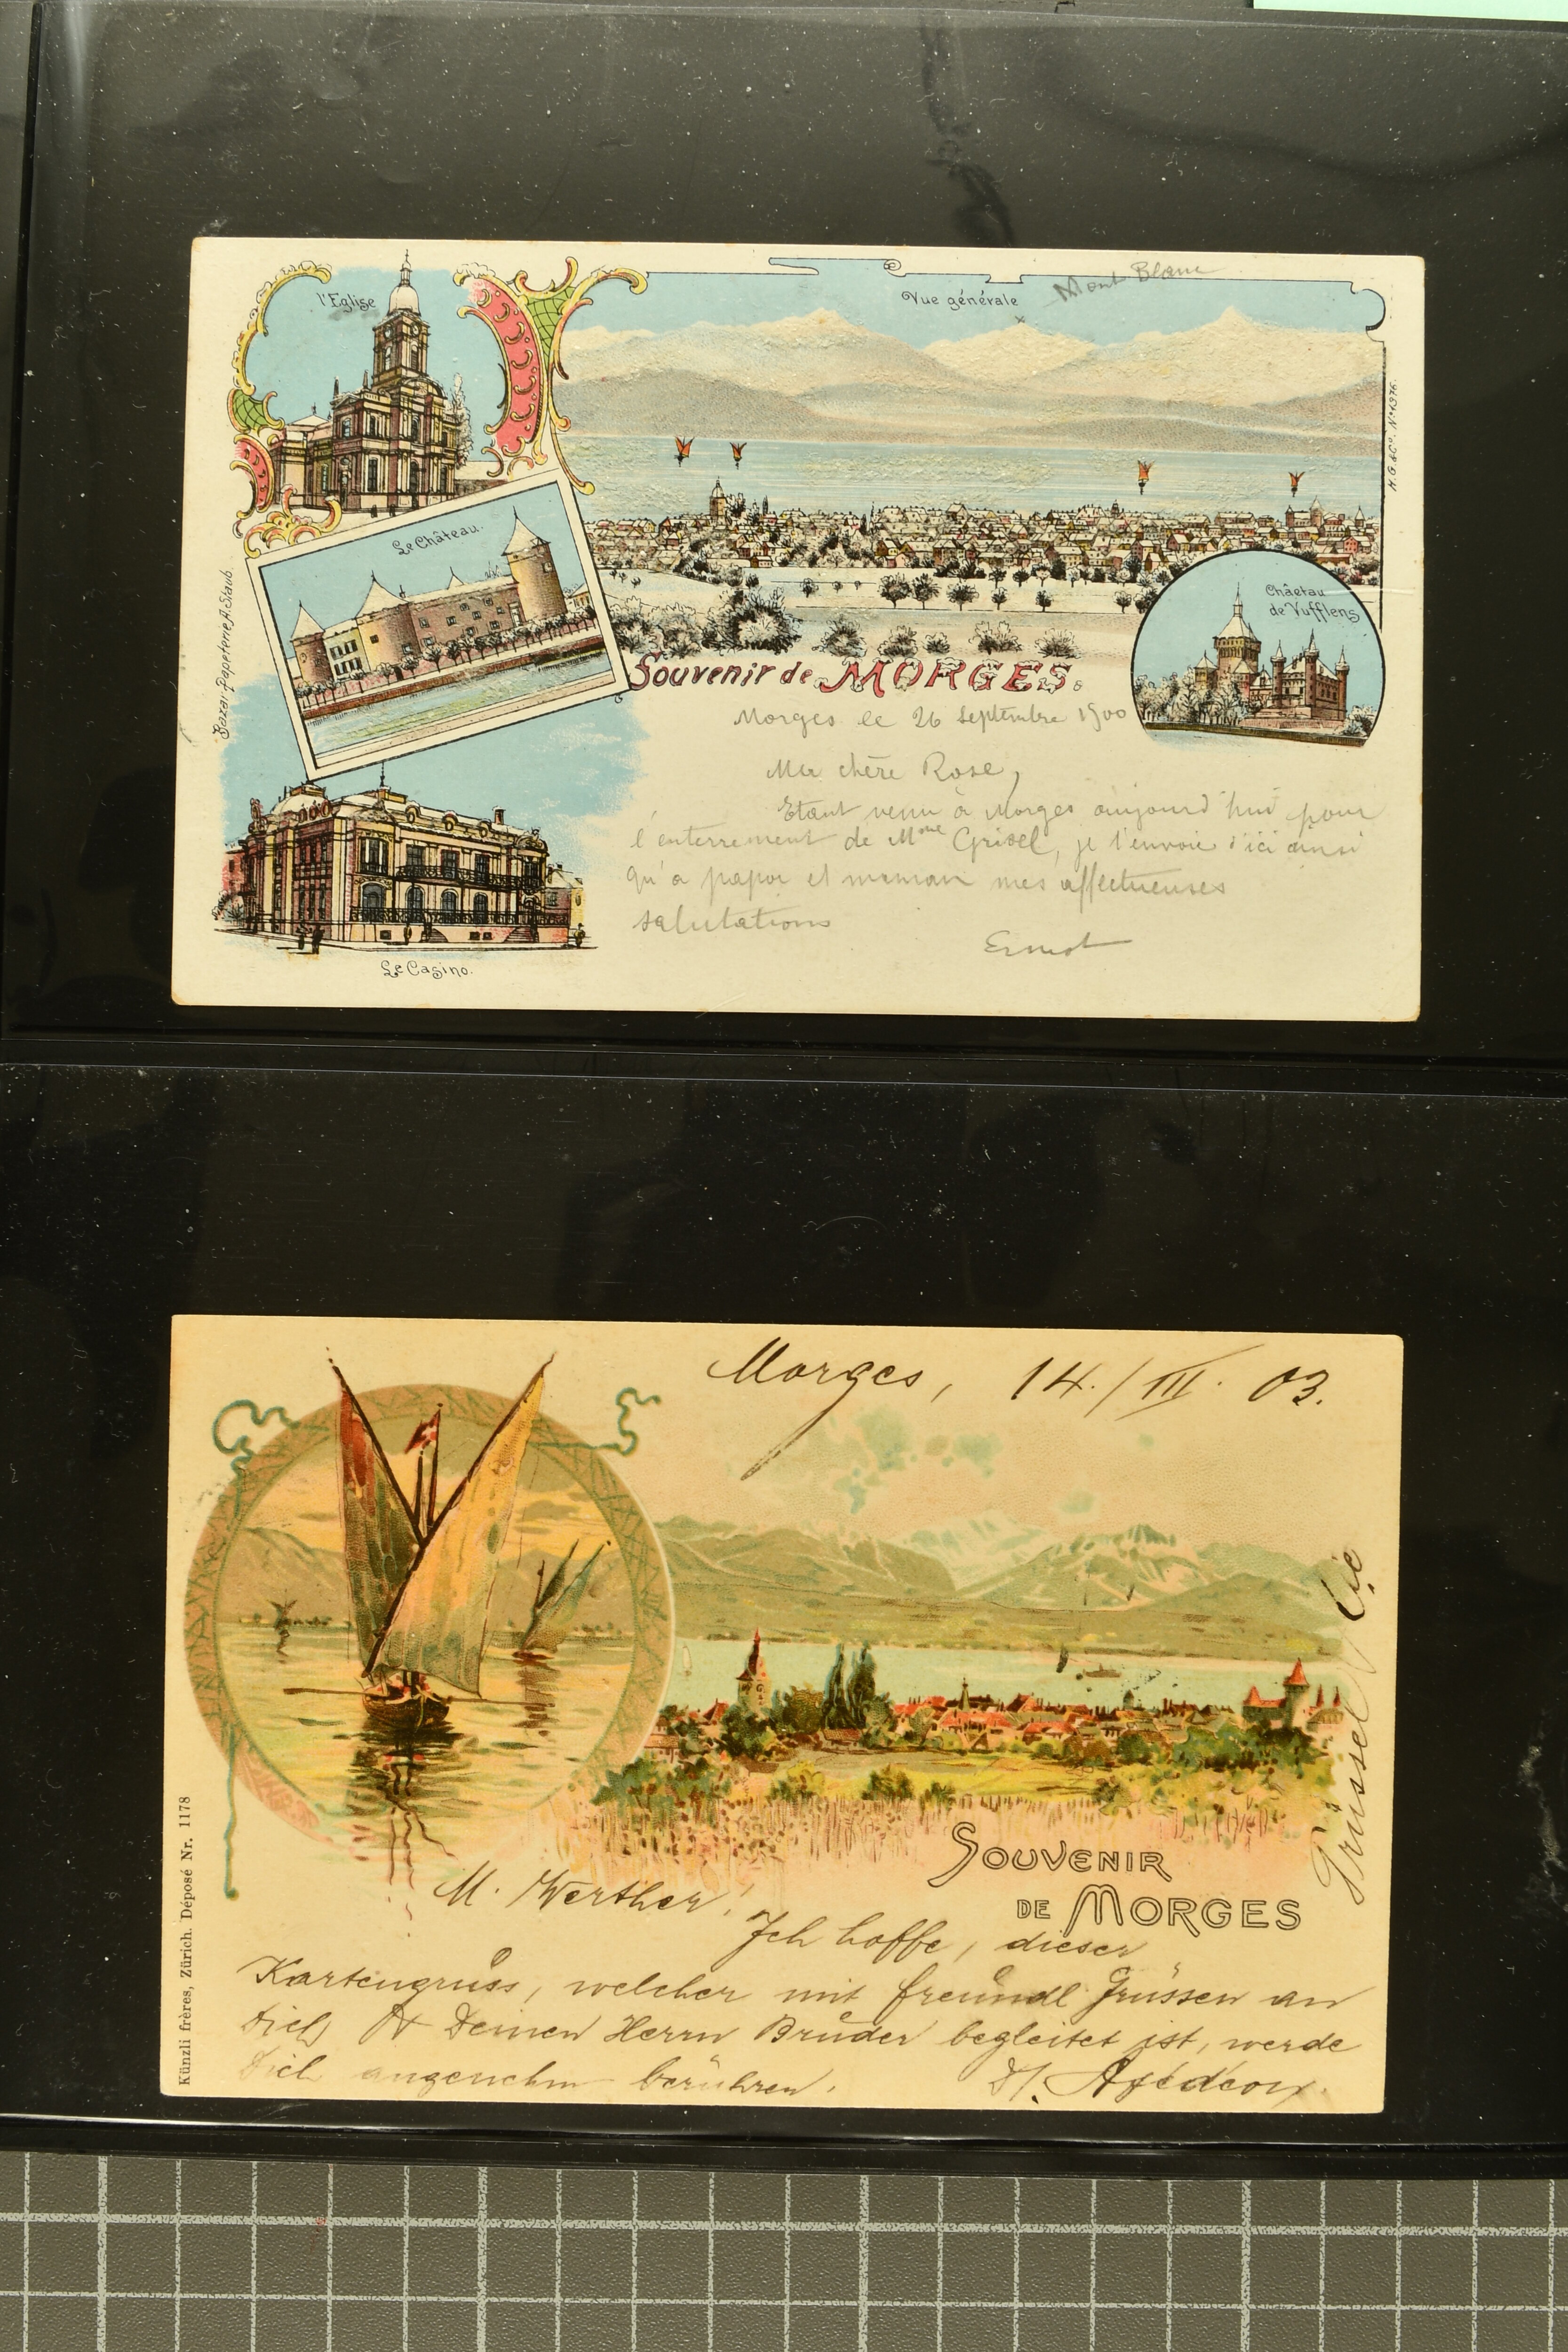 l'Eglise
Vue générale
Mont Blanc
×
H.G.&Co. No 1376.
Le Château.
Châetau
de Vufflens
Bazar-Papeterie A. Staub.
Souvenir de MORGES.
Morges le 26 Septembre 1900
Ma chère Rose,
Etant venu à Morges aujourd'hui pour
l'enterrement de Mme Grisel, je t'envoie d'ici ainsi
qu'à papa et maman mes affectueuses
salutations
Ernest
Le Casino.
Morges, 14./III. 03.
Künzli frères, Zürich. Déposé Nr. 1178
SOUVENIR
DE MORGES
M. Werther!
Ich hoffe, dieser
Kartengruss, welcher mit freundl Grüssen an
Dich & Deinen Herrn Bruder begleitet ist, werde
Dich angenehm berühren.
Grüssel